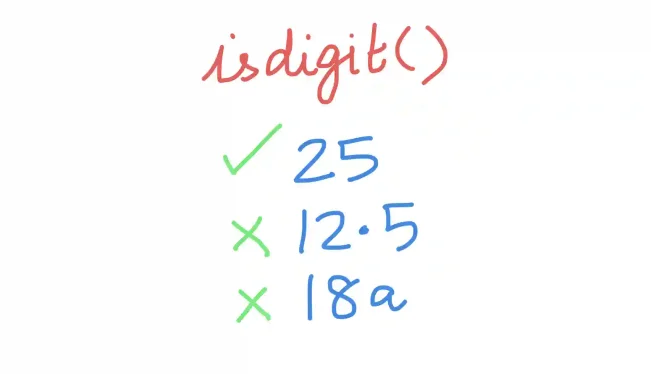 isdigit()
✓ 25
× 12.5
× 18a